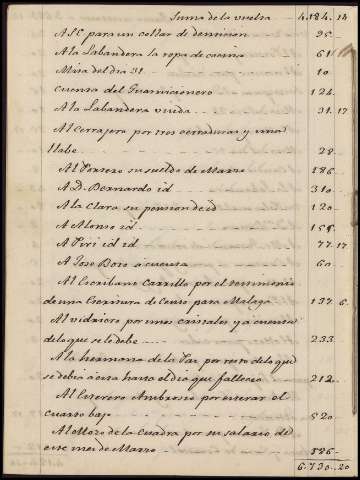 Suma de la vuelta 4.184. 14
A S C para un collar de denticion 25
A la Labandera la ropa de cocina 61
Misa del dia 31 10
Cuenta del Guarnicionero 124
A la Labandera viuda 31. 17
Al Cerrajero por tres cerraduras y una
llabe 28
Al Portero su sueldo de Marzo 186
A D. Bernardo id 310
A la Clara su pension de id 120
A Alonso id
A Piri id id 77. 17
A Jose Boro a cuenta 60
Al Escribano Carrillo por el testimonio
de una Escritura de Censo para Malaga 137. 6
Al vidriero por unos cristales y a cuenta
de lo que se le debe 233
A la hermana de la Paz por resto de lo que
se debia a esta hasta el dia que fallecio 212
Al Esterero Ambrosio por esterar el
cuarto bajo 520
Al Mozo de la Cuadra por su salario de
este mes de Marzo
6.730. 20